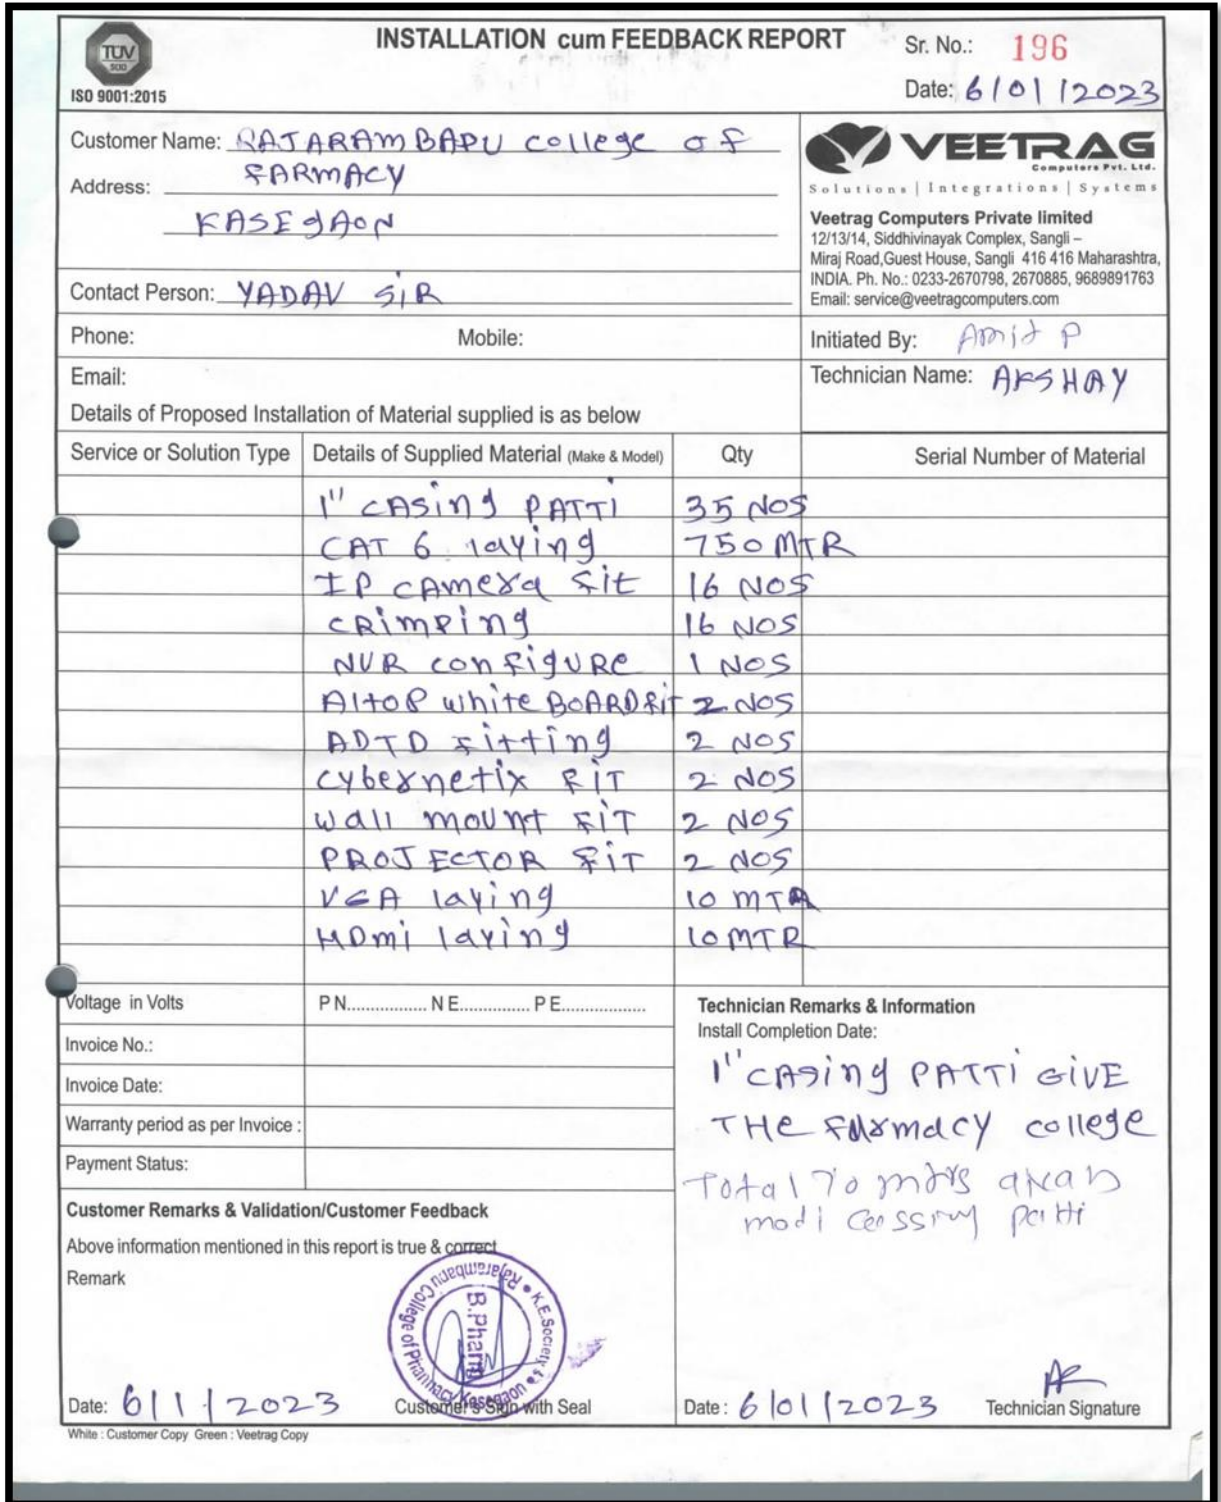 TÜV
SÜD
ISO 9001:2015
INSTALLATION cum FEEDBACK REPORT
Sr. No.: 196
Date: 6/01/2023
Customer Name: RAJARAMBAPU college of
FARMACY
Address:
KASEgAON
Contact Person: YADAV SIR
Phone: Mobile:
Email:
Details of Proposed Installation of Material supplied is as below
VEETRAG
Computers Pvt. Ltd.
Solutions | Integrations | Systems
Veetrag Computers Private limited
12/13/14, Siddhivinayak Complex, Sangli –
Miraj Road,Guest House, Sangli 416 416 Maharashtra,
INDIA. Ph. No.: 0233-2670798, 2670885, 9689891763
Email: service@veetragcomputers.com
Initiated By: Amit P
Technician Name: AKSHAY
Service or Solution Type Details of Supplied Material (Make & Model) Qty Serial Number of Material
1" CASing PATTI 35 NOS
CAT 6 laying 750 MTR
IP CAMera fit 16 NOS
CRimping 16 NOS
NVR configURe 1 NOS
AltoP white BOARD fit 2 NOS
ADTD fitting 2 NOS
cybernetix FIT 2 NOS
wall mount FIT 2 NOS
PROJECTOR FIT 2 NOS
VGA laying 10 MTR
HDmi laying 10 MTR
Voltage in Volts P N................ N E.............. P E.................
Invoice No.:
Invoice Date:
Warranty period as per Invoice :
Payment Status:
Technician Remarks & Information
Install Completion Date:
1" CASing PATTI GIVE
THe Farmacy college
Total 70 mtrs
modi patti
Customer Remarks & Validation/Customer Feedback
Above information mentioned in this report is true & correct
Remark
K.E.Society's Rajarambapu College of Pharmacy Kasegaon
B.Pharm
Date: 6/1/2023
Customer's Sign with Seal
Date: 6/01/2023
Technician Signature
White : Customer Copy Green : Veetrag Copy